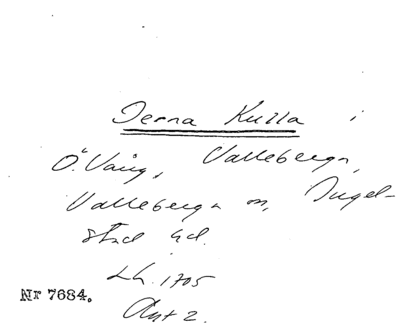 Jerna Kulla i
Ö. Vång, Vallebergn,
Vallebergn sn, Ingel-
stad hd.
Lh. 1705
Akt 2.
Nr 7684.